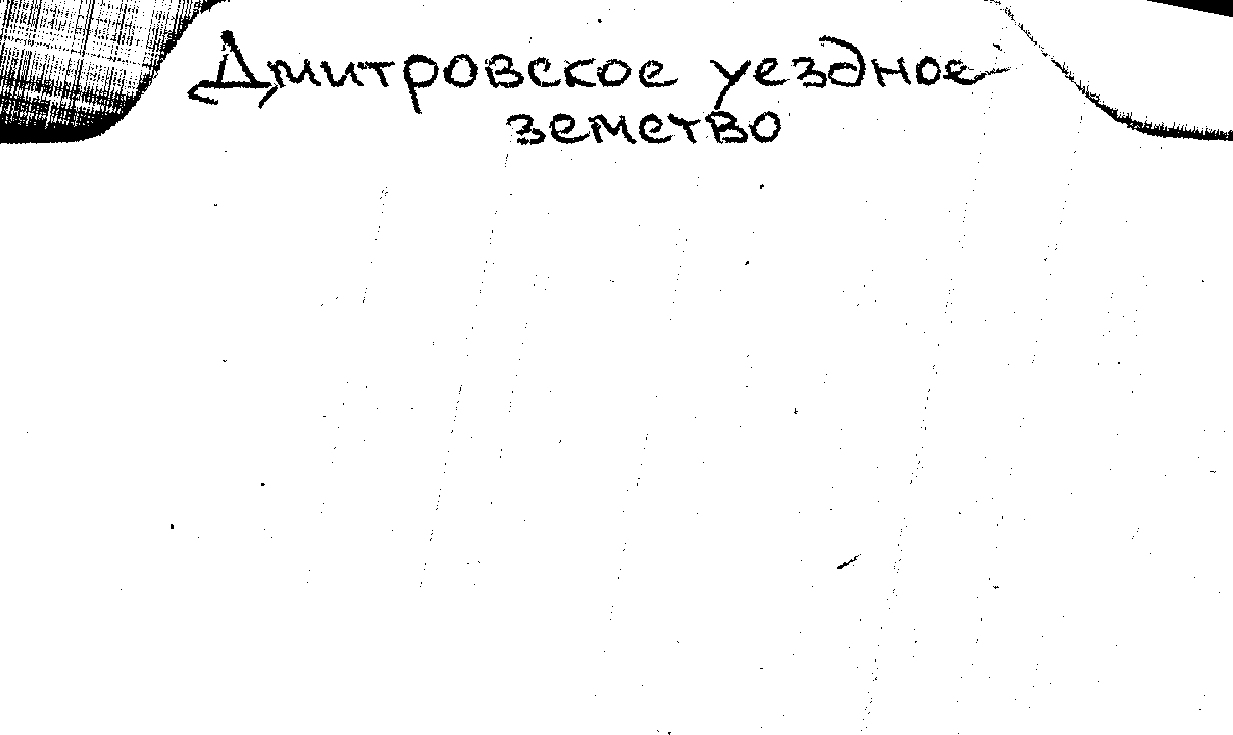 Дмитровское уездное
земство